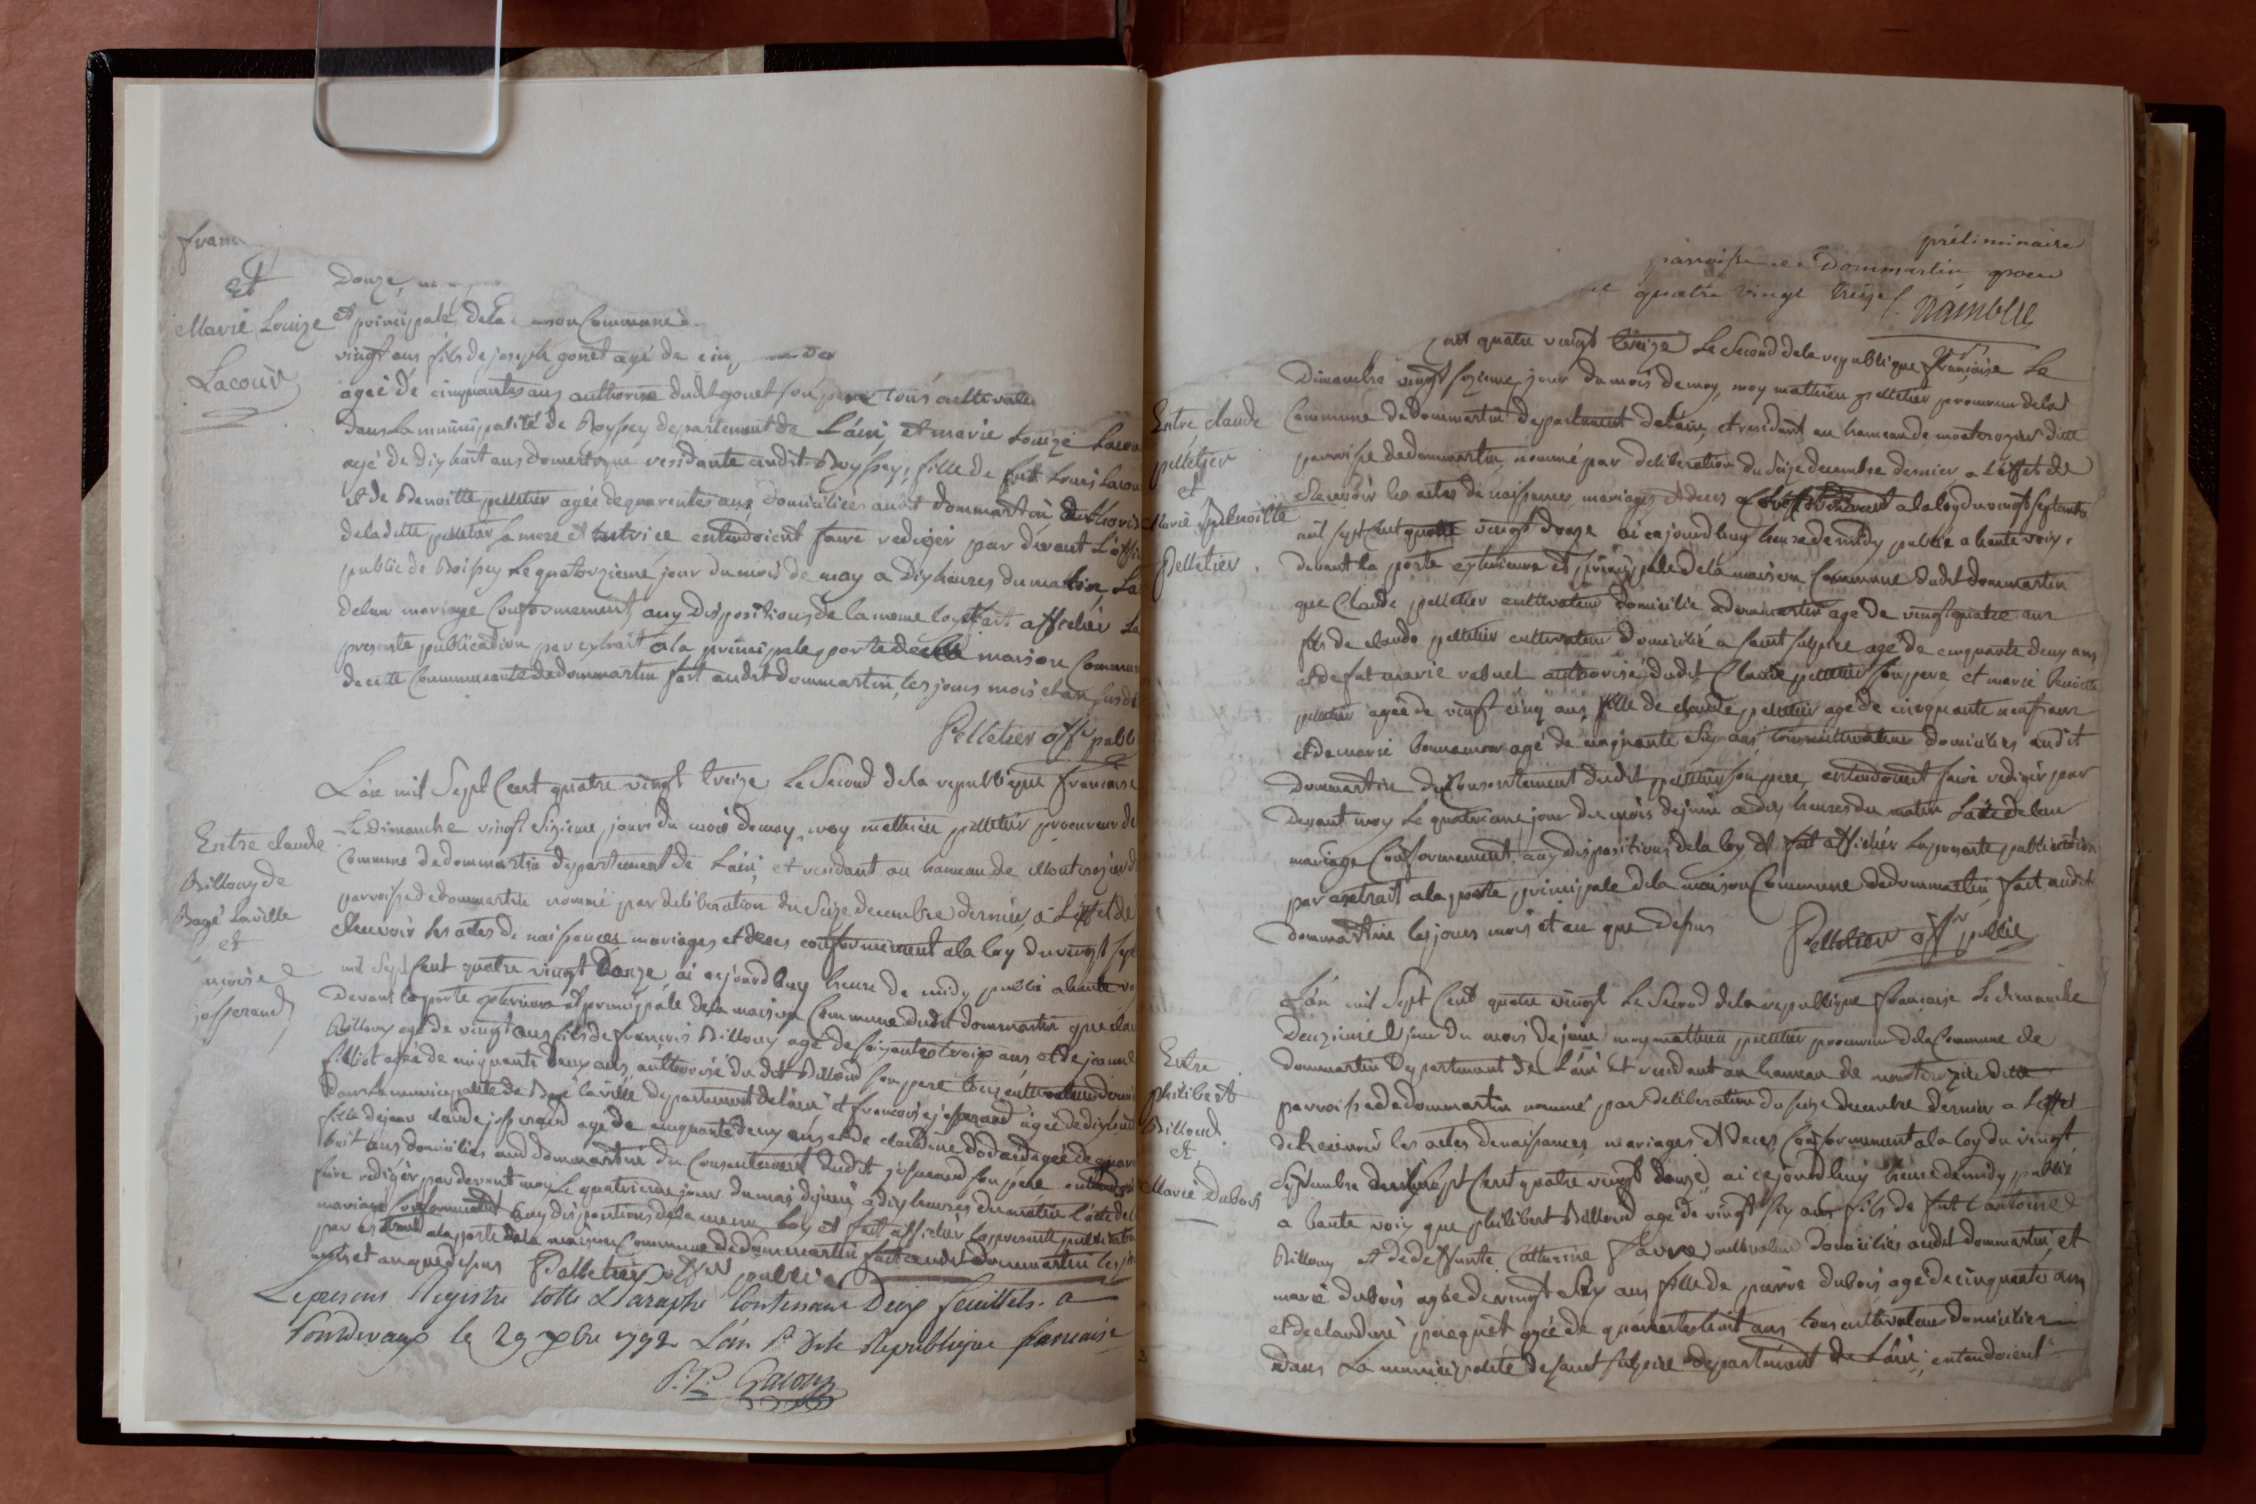 fran
et
Marie Louize
Lacour
Douze,
et principale de la maison Commune
vingt ans fils de joseph gonet agé de cinq
ageé de cinquantes ans authorisé dudit gonet son pere tous cultivate
dans la municipalité de Boyssey departement de L'ain, et marie Louize Lacou
agé de dix huit ans domestique residante audit Boyssey, fille de fut Louis Lacou
et de Benoitte pelletier agée de quarentes ans Domiciliées audit Dommartin authoris
de la ditte pelletier sa mere et tutrice entendoient faire rediger par devant L'offi
public de Boissey Le quatorzieme jour du mois de may a dix heures du matin La
de leur mariage Conformement aux dispositions de la meme loy et fait afficher La
presente publication par extrait a la principale porte de la maison Commun
de cette Communeauté de dommartin fait audit dommartin, les jours mois et an susdi
Pelletier off publi
Entre claude
Billouz de
Bagé Laville
et
josserand
L'an mil Sept Cent quatre vingt treize Le Second de la republique francaise
Le Dimanche vingt sizieme jour du mois de may, moy mathieu pelletier procureur de
Commune de dommartin departement de L'ain, et residant au hameau de Montcrozier d
parroisse de dommartin nommé par deliberation du Seize decembre dernier, a L'effet de
Recevoir les actes de naissances mariages et deces conformement a la loy du vingt sept
mil Sept Cent quatre vingt Douze ai cejourdhuy heure de midy publié a haute vo
Devant la porte exterieure et principale de la maison Commune dudit dommartin que clau
Billouz agé de vingt ans fils de francois Billouz agé de soixante trois ans et de jeanne
filliot agée de cinquante deux ans, authorisé du dit Billoud son pere tous cultivateurs domi
dans la municipalité de Bagé la ville departement de L'ain et francoise josserand agée de dix huit
fille de jean claude josserand agé de cinquante deux ans et de claudine dodard agée de quare
huit ans domiciliés aud dommartin du Consentement dudit josserand son pere entendoi
faire rediger par devant moy Le quatrieme jour du mois de juin a dix heures du matin L'acte de l
mariage Conformement aux dispositions de la meme loy et fait afficher la presente publicatio
par extrait a la porte de la maison Commune de dommartin fait audit dommartin les jou
mois et an que dessus Pelletier off public
Le present Registre Cotté & Paraphé Contenant Deux feuillets. a
Pontdevaux le 29 xbre 1792 L'an 1er de la Republique francaise
préliminaire
parroisse de Dommartin pour
quatre vingt treize
Entre claude
pelletier
et
Marie Benoitte
Pelletier
Cent quatre vingt treize Le Second de la republique française Le
Dimanche vingt sizieme jour du mois de may, moy mathieu pelletier procureur de la
Commune de dommartin departement de L'ain, et residant au hameau de montcrozier ditte
parroisse de dommartin nommé par deliberation du Seize decembre dernier a L'effet de
Recevoir les actes de naissances mariages et deces conformement a la loy du vingt septembre
mil sept Cent quatre vingt douze ai cejourdhuy heure de midy publié a haute voix,
devant la porte exterieure et principale de la maison Commune dudit dommartin
que Claude pelletier cultivateur domicilié a dommartin agé de vingt quatre ans
fils de claude pelletier cultivateur domicilié a saint sulpice agé de cinquante deux ans
et de fut marie authorisé dudit Claude pelletier son pere et marie benoitte
pelletier ageé de vingt cinq ans fille de claude pelletier agé de cinquante neuf ans
et de marie bonnamour agé de cinquante six ans tous cultivateurs domiciliés audit
Dommartin du Consentement dudit pelletier son pere, entendoient faire rediger par
Devant moy Le quatrieme jour du mois de juin a dix heures du matin L'acte de leur
mariage Conformement aux dispositions de la loy et fait afficher la presente publication
par extrait a la porte principale de la maison Commune de dommartin, fait audit
dommartin les jours mois et an que dessus Pelletier offer public
Entre
philibert
Billoud
et
Marie Dubois
L'an mil Sept Cent quatre vingt Le Second de la republique francaise Le dimanche
Deuzieme jour du mois de juin moy mathieu pelletier procureur de la Commune de
dommartin Departement de L'ain et residant au hameau de montcrozier ditte
parroisse de dommartin nommé par deliberation du seize decembre dernier a L'effet
de Recevoir les actes de naissances, mariages et deces, Conformement a la loy du vingt
septembre mil sept Cent quatre vingt douze ai cejourdhuy heure de midy publié
a haute voix que philibert Billoud agé de vingt six ans fils de fut antoine
Billouz et de deffunte Catherine favre cultivateur Domiciliés audit dommartin, et
marie dubois agée de vingt six ans fille de pierre dubois agé de cinquante ans
et de claudine paquet agée de quarente huit ans tous cultivateurs domiciliés
Dans La municipalité de saint sulpice departement de L'ain, entendoient